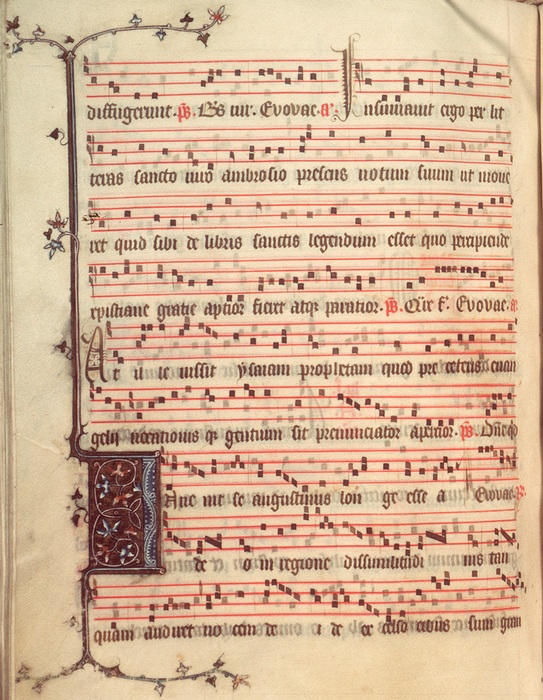 diffugerunt. ps. Bs vir. Evovae. a. Insinuavit ergo per lit
teras sancto viro ambrosio presens votum suum ut mone
ret quid sibi de libris sanctis legendum esset quo percipiende
xpistiane gratie aptior fieret atqz paratior. ps. Evovae. a.
At il le iussit ysaiam prophetam quod pre ceteris euan
gelii vocationis qz gentium sit prenunciator apertior. ps. Dne qd
Inve nit se augustinus lon ge esse a Evovae. ps.
de o in regione dissimilitudi nis tan
quam audiret vo cem de i de ex celso eius sum gran